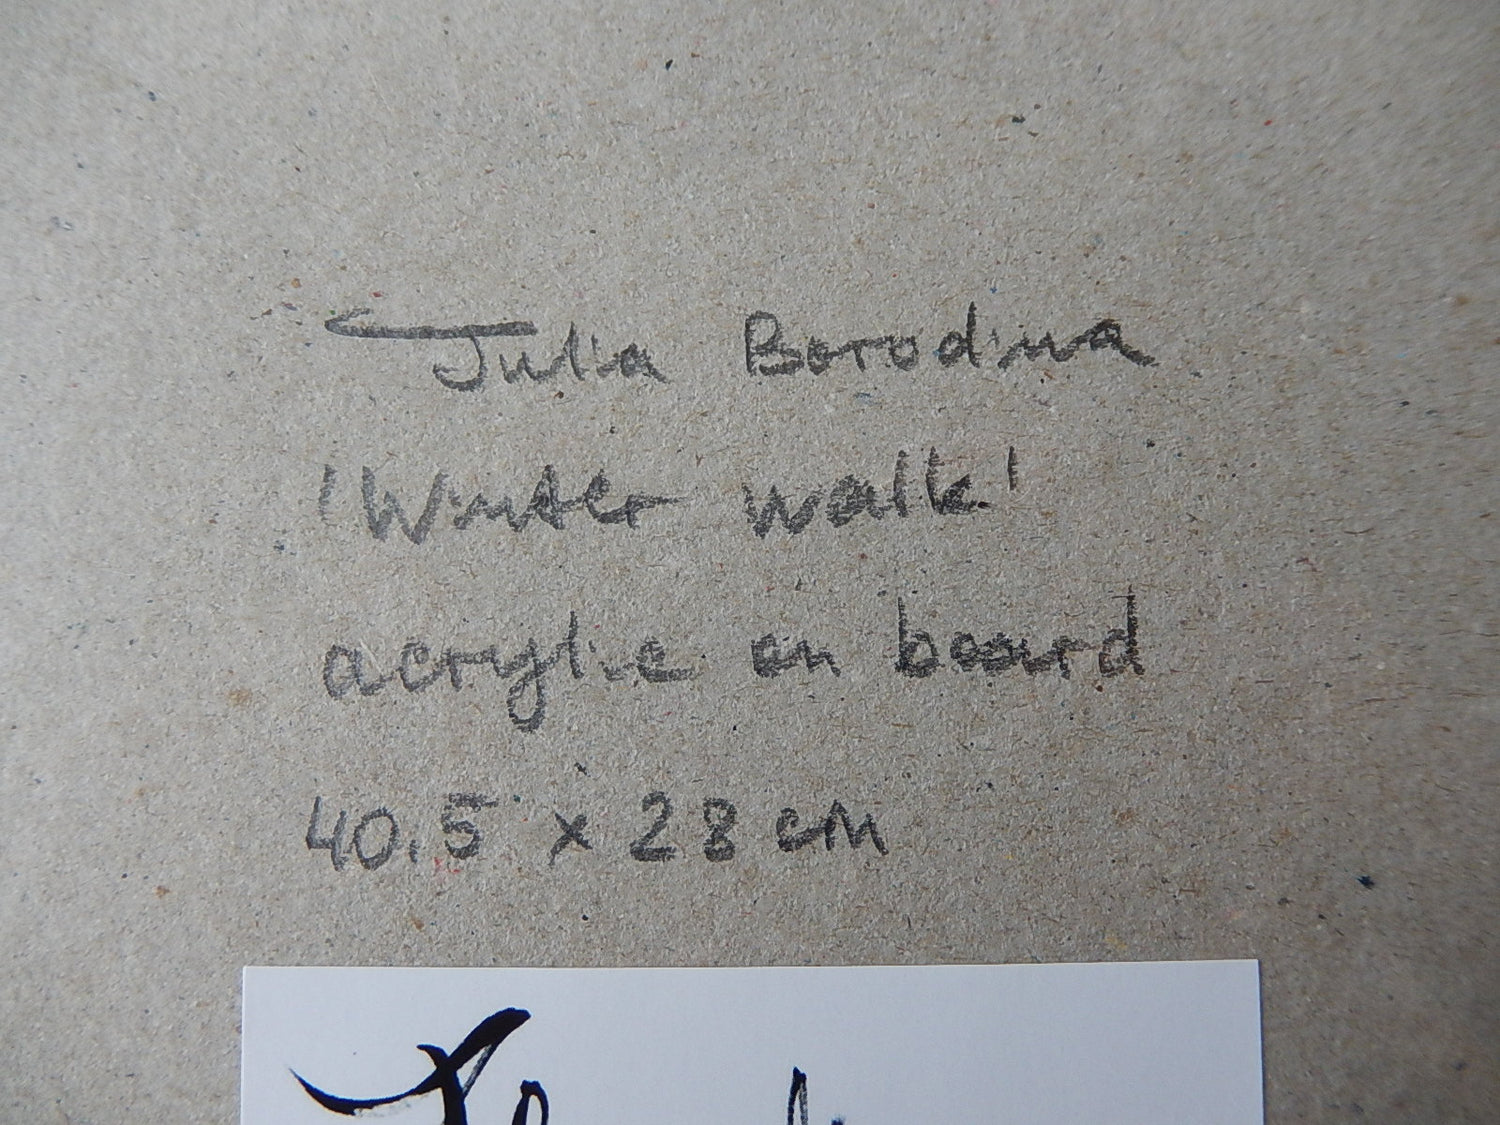 Julia Borodina
'Winter walk'
acrylic on board
40.5 x 28 cm